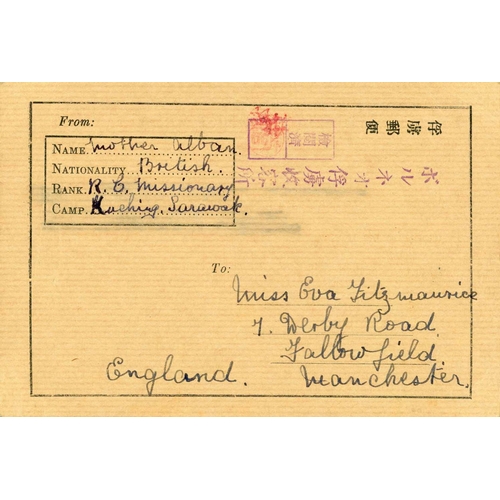 From:
俘虜郵便
檢閲濟
ボルネオ俘虜收容所
NAME Mother Alban.
NATIONALITY British.
RANK. R. C. Missionary
CAMP. Kuching, Sarawak.
To:
Miss Eva Fitzmaurice
7. Derby Road.
Fallowfield.
Manchester.
England.